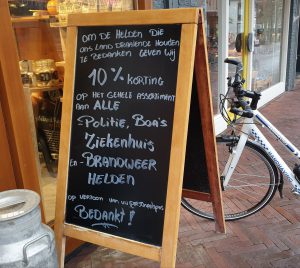 OM DE HELDEN DIE
ONS LAND DRAAIENDE HOUDEN
TE BEDANKEN GEVEN WIJ
10% KORTING
OP HET GEHELE ASSORTIMENT
AAN ALLE
-POLITIE, BOA'S
ZIEKENHUIS
EN-BRANDWEER
HELDEN
OP VERTOON VAN UW
BEDANKT!